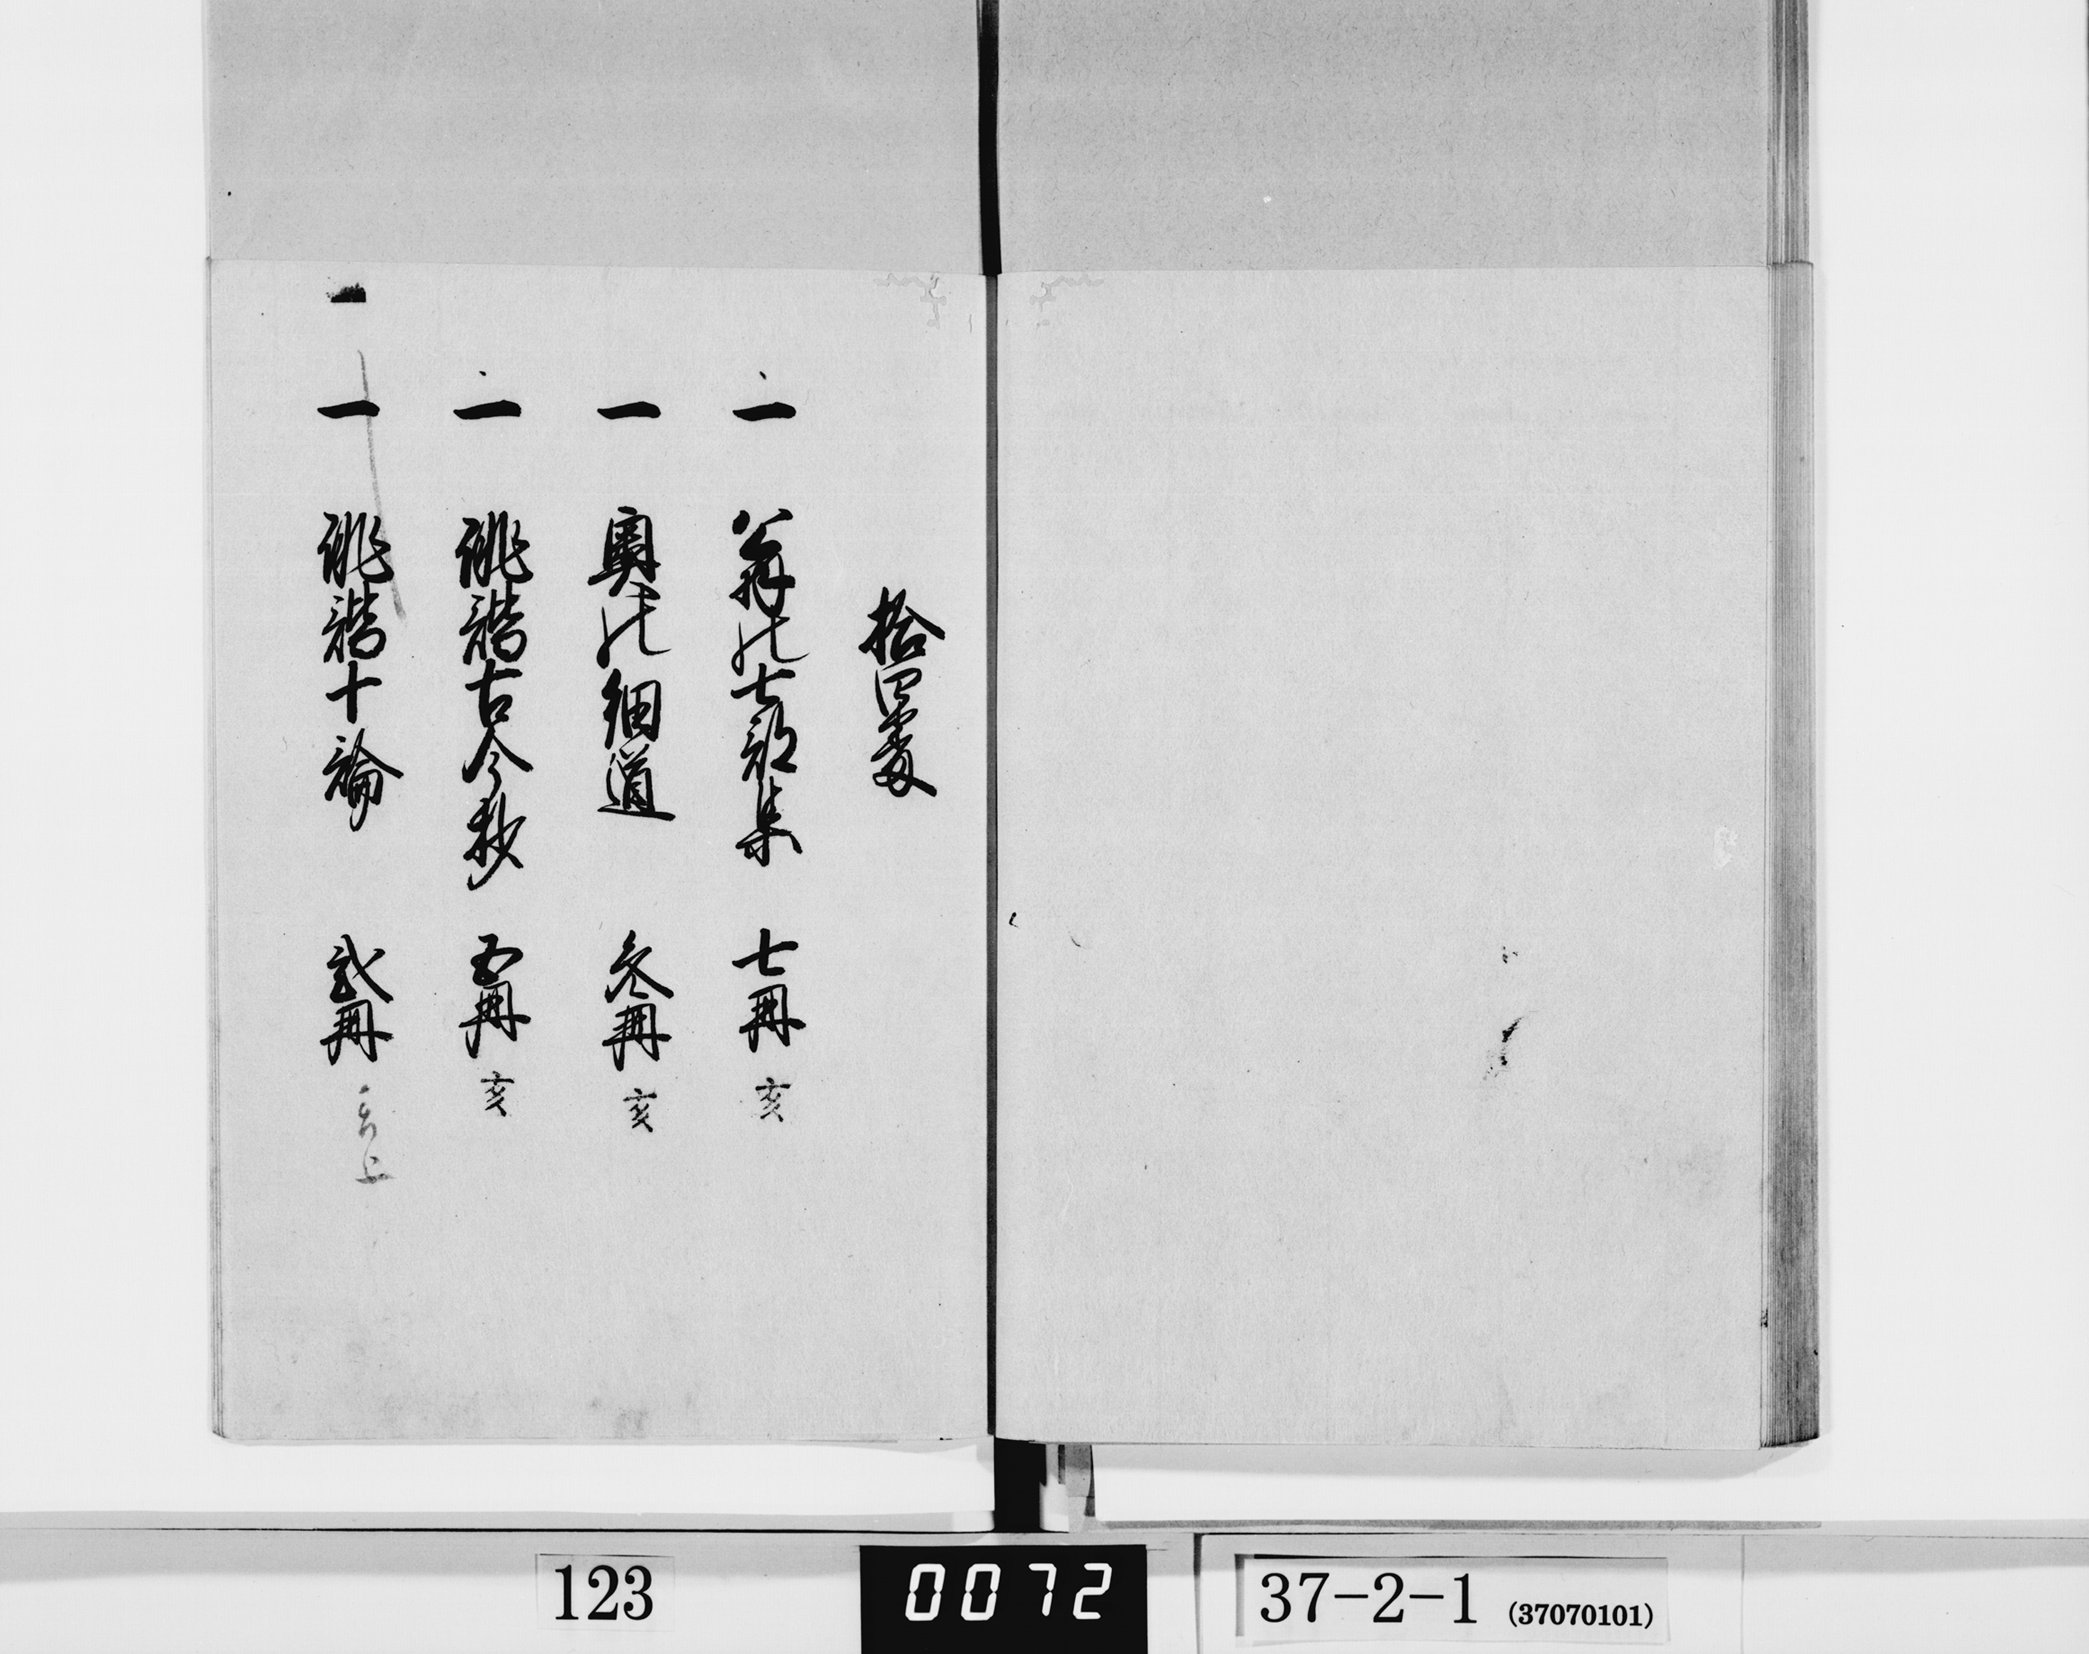 拾四
一 翁の七部集 七冊 亥
一 奥の細道 参冊 亥
一 誹諧古今抄 五冊 亥
一 誹諧十論 弐冊 上
123
0072
37-2-1 (37070101)